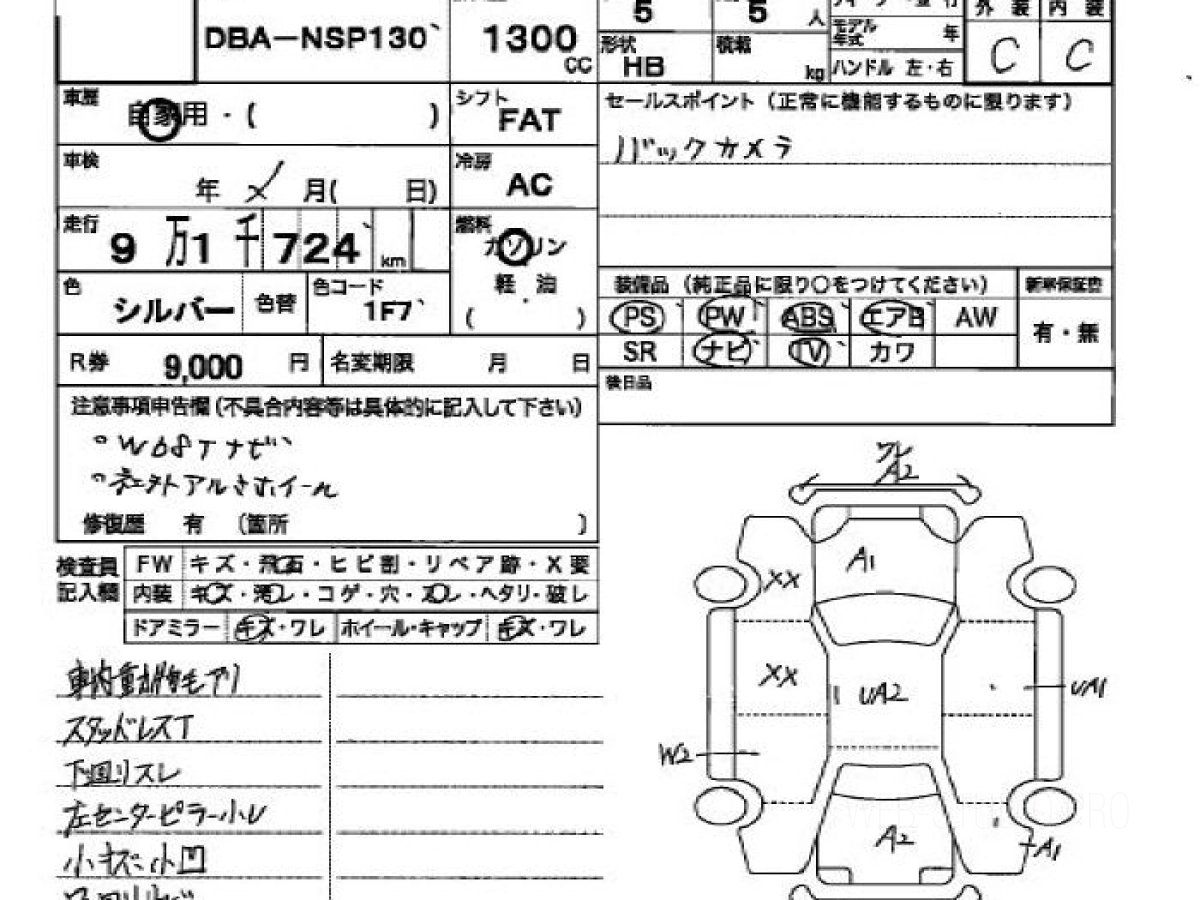 5 5 人 外装 内装
DBA-NSP130 1300 CC
形状 HB 積載 kg モデル年式 年 ハンドル 左・右 C C
車歴 自家用・( ) シフト FAT
セールスポイント(正常に機能するものに限ります)
バックカメラ
車検 年 月( 日) 冷房 AC
走行 9万1千724 km 燃料 ガソリン
軽油
( )
色 シルバー 色替 色コード 1F7
装備品(純正品に限り○をつけてください) 新車保証書
PS PW ABS エアB AW 有・無
SR ナビ TV カワ
R券 9,000 円 名変期限 月 日
後日品
注意事項申告欄(不具合内容等は具体的に記入して下さい)
°W68Tナビ
°社外アルミホイール
修復歴 有 (箇所 )
検査員記入欄 FW キズ・飛石・ヒビ割・リペア跡・X要
内装 キズ・汚レ・コゲ・穴・スレ・ヘタリ・破レ
ドアミラー キズ・ワレ ホイール・キャップ キズ・ワレ
スタッドレスT
下回リスレ
左センターピラー小
小キズ小凹
ワレ
A2
A1
XX
XX
UA2
UA1
W2
A2
A1